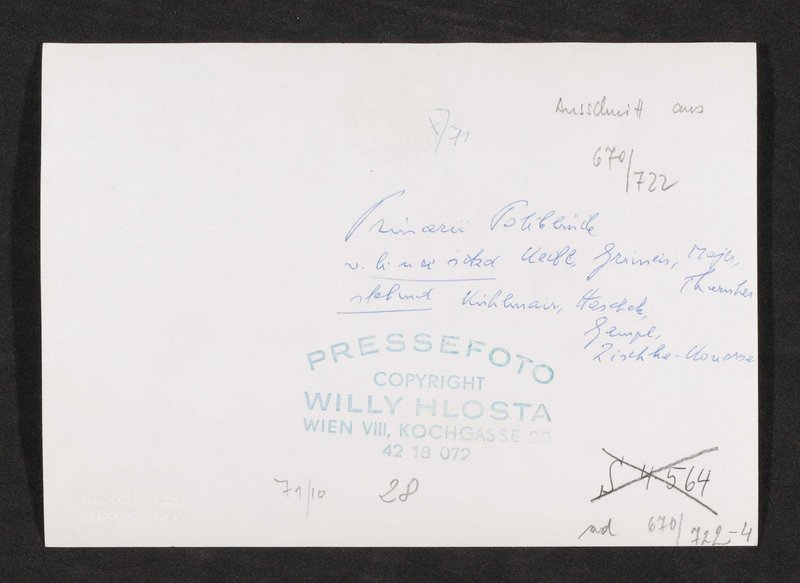 Ausschnitt aus
670/722
X/71
Primarii Poliklinik
v. li n re sitzd Keibl, Grineis, Majer,
Thurnher
stehend Kühlmair, Haschek,
Gampl,
Zischka-Konorsa
PRESSEFOTO
COPYRIGHT
WILLY HLOSTA
WIEN VIII, KOCHGASSE
42 18 072
71/10 28
S 4564
ad 670/722-4